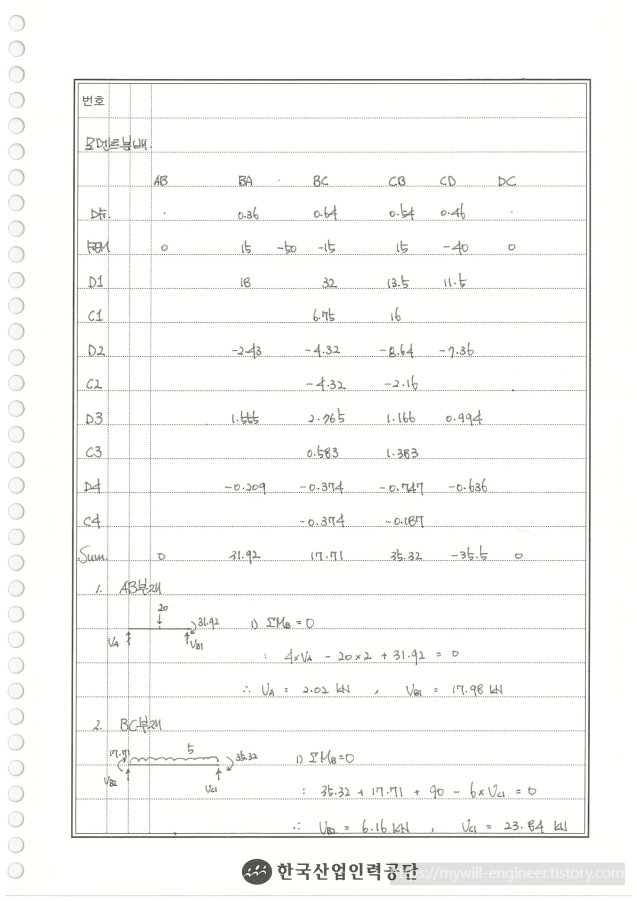 번호
모멘트분배.
AB BA BC CB CD DC
DF. 0.36 0.64 0.54 0.46
FEM 0 15 -50 -15 15 -40 0
D1 18 32 13.5 11.5
C1 6.75 16
D2 -2.43 -4.32 -8.64 -7.36
C2 -4.32 -2.16
D3 1.555 2.765 1.166 0.994
C3 0.583 1.383
D4 -0.209 -0.374 -0.747 -0.636
C4 -0.374 -0.187
Sum. 0 31.92 17.71 35.32 -35.5 0
1. AB부재
20
31.92 1) ΣMB = 0
VA VB1
: 4×VA - 20×2 + 31.92 = 0
∴ VA = 2.02 kN , VB1 = 17.98 kN
2. BC부재
17.71 5 35.32 1) ΣMB=0
VB2 VC1
: 35.32 + 17.71 + 90 - 6×VC1 = 0
∴ VB2 = 6.16 kN , VC1 = 23.84 kN
한국산업인력공단
https://mywill-engineer.tistory.com